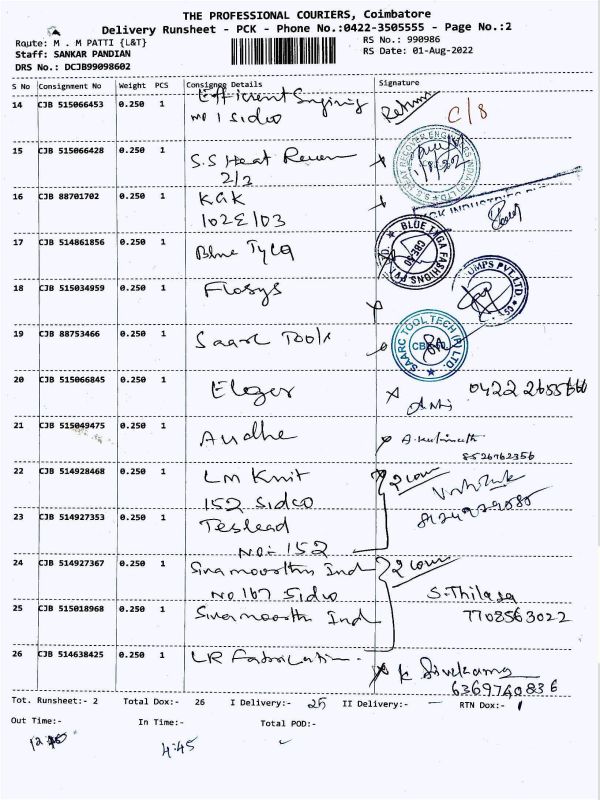 THE PROFESSIONAL COURIERS, Coimbatore
Delivery Runsheet - PCK - Phone No.:0422-3505555 - Page No.:2
Route: M . M PATTI {L&T}
RS No.: 990986
Staff: SANKAR PANDIAN
RS Date: 01-Aug-2022
DRS No.: DCJB99098602
S No Consignment No Weight PCS Consignee Details Signature
14 CJB 515066453 0.250 1 Efficient Return C/8
1 Sidco
15 CJB 515066428 0.250 1 S.S Heat
2/2
1/8/22
16 CJB 88701702 0.250 1 KGK
102E/03
INDUSTRIES
17 CJB 514861856 0.250 1 Blue Tyca
BLUE FASHIONS PVT LTD.
18 CJB 515034959 0.250 1 Flosys
PUMPS PVT.LTD.
19 CJB 88753466 0.250 1 Saarc Tools
SAARC TOOL TECH (P) LTD.
20 CJB 515066845 0.250 1 Elgi
21 CJB 515049475 0.250 1
8526762356
22 CJB 514928468 0.250 1 LM Knit 2 cover
152 Sidco
23 CJB 514927353 0.250 1 Teslead
No:- 152
24 CJB 514927367 0.250 1 Sivamoorthy Ind 2 cover
No 167 Sidco
S. Thilaga
25 CJB 515018968 0.250 1 Sivamoorthy Ind
7708563022
26 CJB 514638425 0.250 1 LR Fabrication -
K Sivakama
6369740836
Tot. Runsheet:- 2 Total Dox:- 26 I Delivery:- 25 II Delivery:- RTN Dox:- 1
Out Time:- In Time:- Total POD:-
4:45